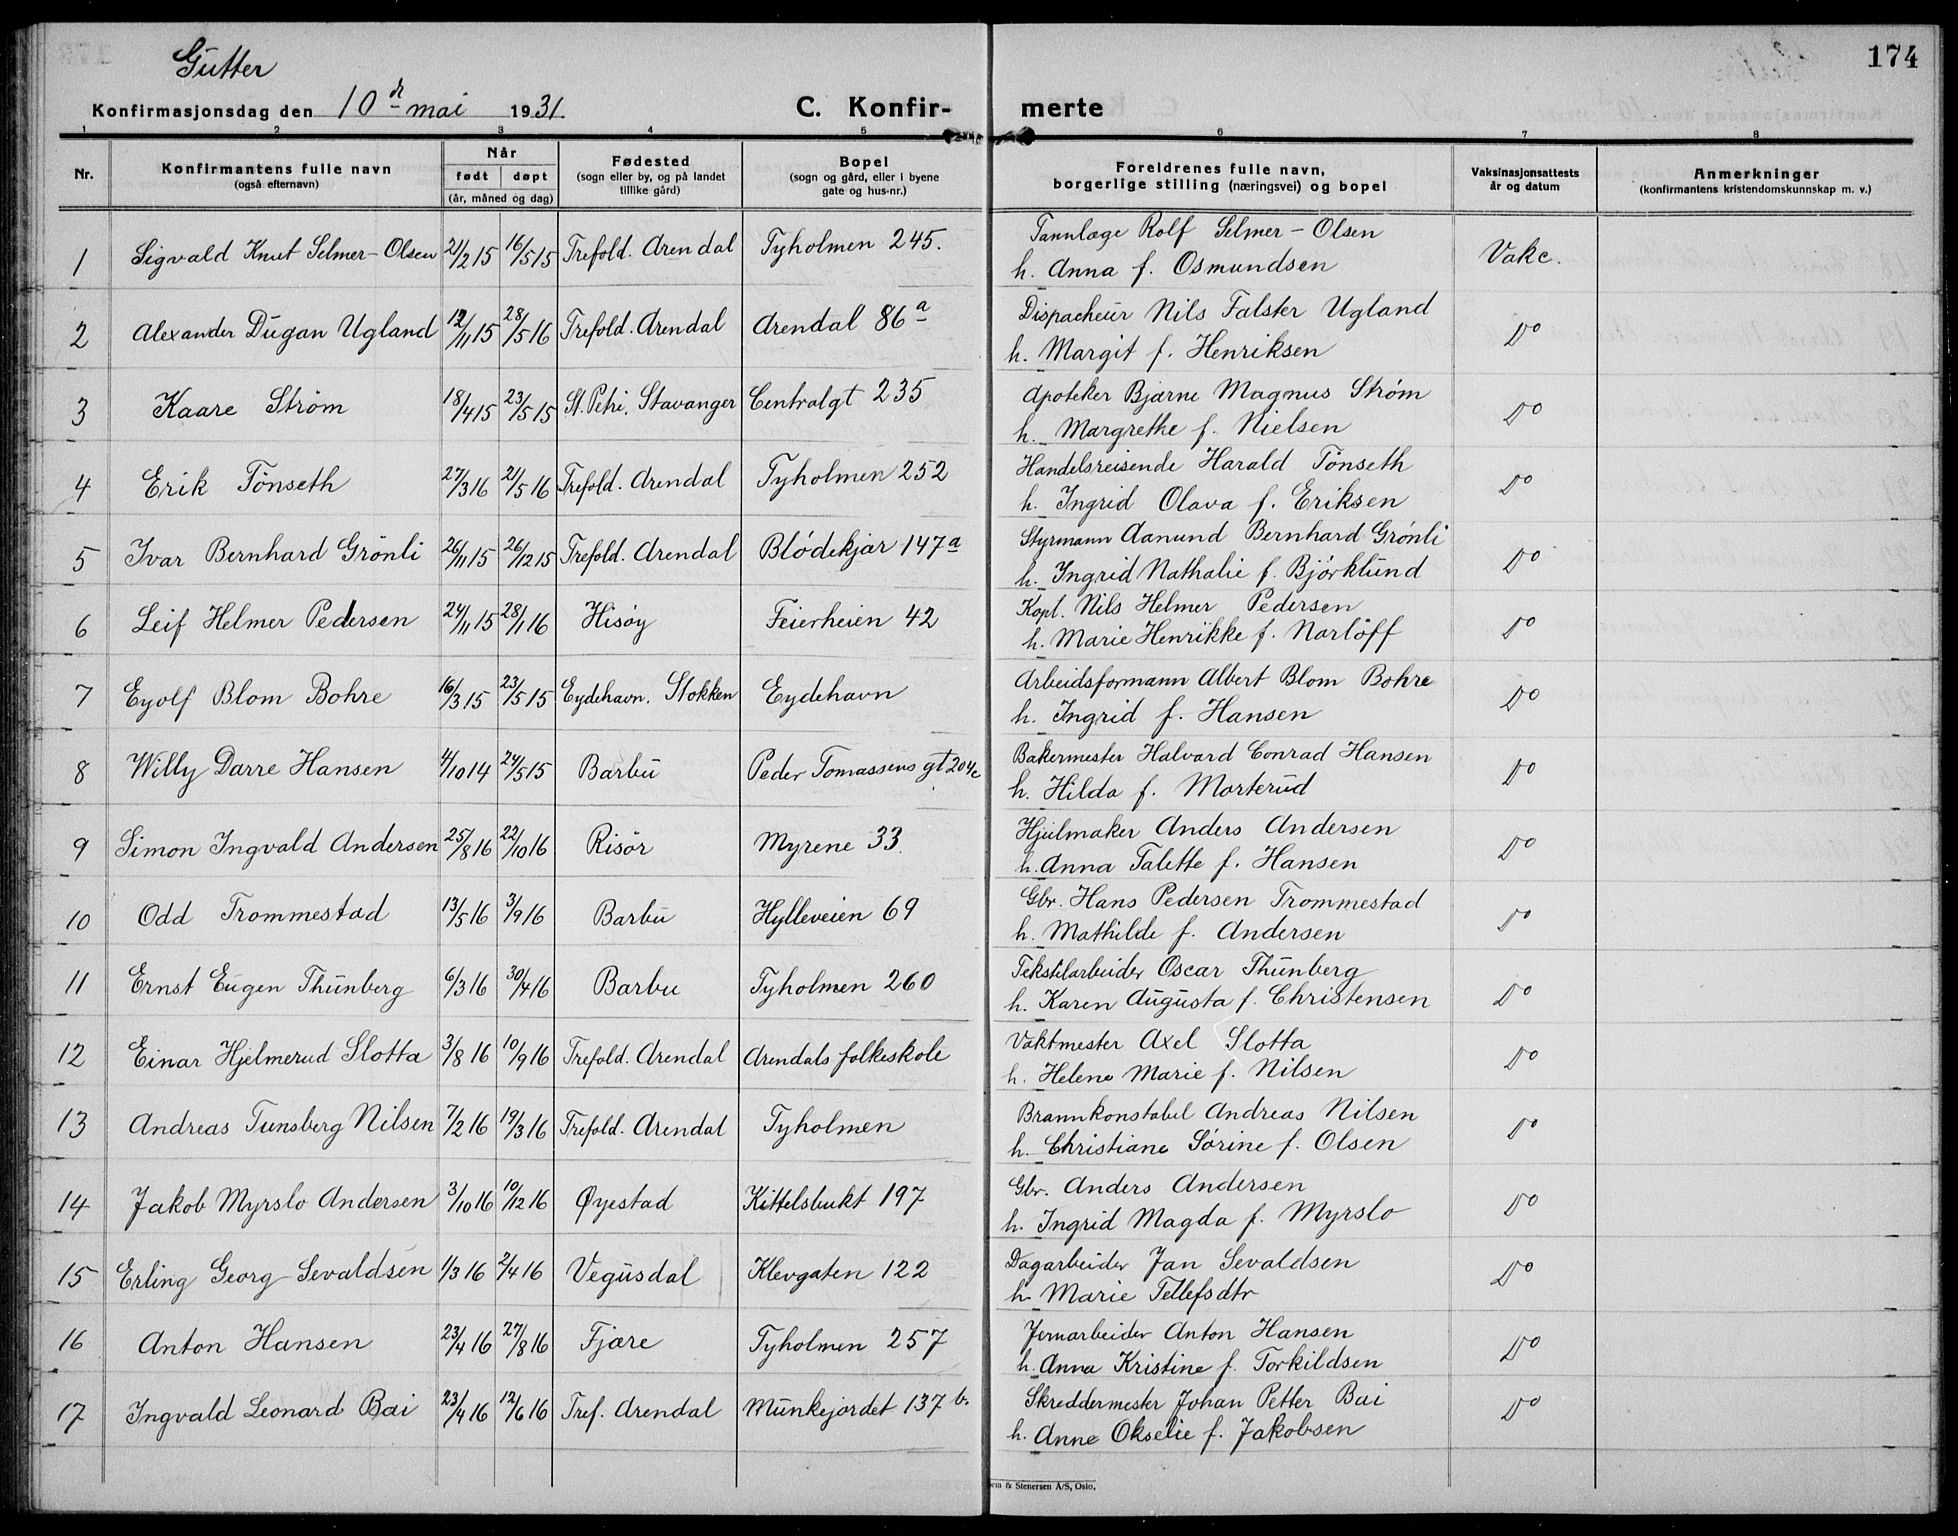 Gutter
174
Konfirmasjonsdag den 10de mai 1931.
C. Konfirmerte
1 2 3 4 5 6 7 8
Nr. | Konfirmantens fulle navn (også efternavn) | Når født | døpt (år, måned og dag) | Fødested (sogn eller by, og på landet tillike gård) | Bopel (sogn og gård, eller i byene gate og hus-nr.) | Foreldrenes fulle navn, borgerlige stilling (næringsvei) og bopel | Vaksinasjonsattests år og datum | Anmerkninger (konfirmantens kristendomskunnskap m. v.)
1 | Sigvald Knut Selmer-Olsen | 21/2 15 | 16/5 15 | Trefold. Arendal | Tyholmen 245. | Tannlæge Rolf Selmer-Olsen h. Anna f. Osmundsen | Vakc.
2 | Alexander Dugan Ugland | 12/11 15 | 28/5 16 | Trefold. Arendal | Arendal 86a | Dispacheur Nils Falster Ugland h. Margit f. Henriksen | Do
3 | Kaare Strøm | 18/4 15 | 23/5 15 | St. Petri, Stavanger | Centralgt 235 | Apoteker Bjarne Magnus Strøm h. Margrethe f. Nielsen | Do
4 | Erik Tønseth | 27/3 16 | 21/5 16 | Trefold. Arendal | Tyholmen 252 | Handelsreisende Harald Tønseth h. Ingrid Olava f. Eriksen | Do
5 | Ivar Bernhard Grønli | 26/11 15 | 26/12 15 | Trefold. Arendal | Blødekjær 147a | Styrmann Aanund Bernhard Grønli h. Ingrid Nathalie f. Bjørklund | Do
6 | Leif Helmer Pedersen | 24/11 15 | 28/1 16 | Hisøy | Feierheien 42 | Kapt. Nils Helmer Pedersen h. Marie Henrikke f. Narløff | Do
7 | Eyolf Blom Bohre | 16/3 15 | 23/5 15 | Eydehavn. Stokken | Eydehavn | Arbeidsformann Albert Blom Bohre h. Ingrid f. Hansen | Do
8 | Willy Darre Hansen | 4/10 14 | 24/5 15 | Barbu | Peder Tomassens gt 204c | Bakermester Halvard Conrad Hansen h. Hilda f. Morterud | Do
9 | Simon Ingvald Andersen | 25/8 16 | 22/10 16 | Risør | Myrene 33. | Hjulmaker Anders Andersen h. Anna Talette f. Hansen | Do
10 | Odd Trommestad | 13/5 16 | 3/9 16 | Barbu | Hylleveien 69 | Gbr. Hans Pedersen Trommestad h. Mathilde f. Andersen | Do
11 | Ernst Eugen Thunberg | 6/3 16 | 30/4 16 | Barbu | Tyholmen 260 | Tekstilarbeider Oscar Thunberg h. Karen Augusta f. Christensen | Do
12 | Einar Hjelmerud Slotta | 3/8 16 | 10/9 16 | Trefold. Arendal | Arendals folkeskole | Vaktmester Axel Slotta h. Helene Marie f. Nilsen | Do
13 | Andreas Tunsberg Nilsen | 7/2 16 | 19/3 16 | Trefold. Arendal | Tyholmen | Brannkonstabel Andreas Nilsen h. Christiane Sørine f. Olsen | Do
14 | Jakob Myrslo Andersen | 3/10 16 | 10/12 16 | Øyestad | Kittelsbukt 197 | Gbr. Anders Andersen h. Ingrid Magda f. Myrslo | Do
15 | Erling Georg Sevaldsen | 1/3 16 | 2/4 16 | Vegusdal | Klevgaten 122 | Dagarbeider Jan Sevaldsen h. Marie Tellefsdtr | Do
16 | Anton Hansen | 23/4 16 | 27/8 16 | Fjære | Tyholmen 257 | Jernarbeider Anton Hansen h. Anna Kristine f. Torkildsen | Do
17 | Ingvald Leonard Bai | 23/4 16 | 12/6 16 | Tref. Arendal | Munkejordet 137 b. | Skreddermester Johan Petter Bai h. Anne Okselie f. Jakobsen | Do
& Stenersen A/S, Oslo.